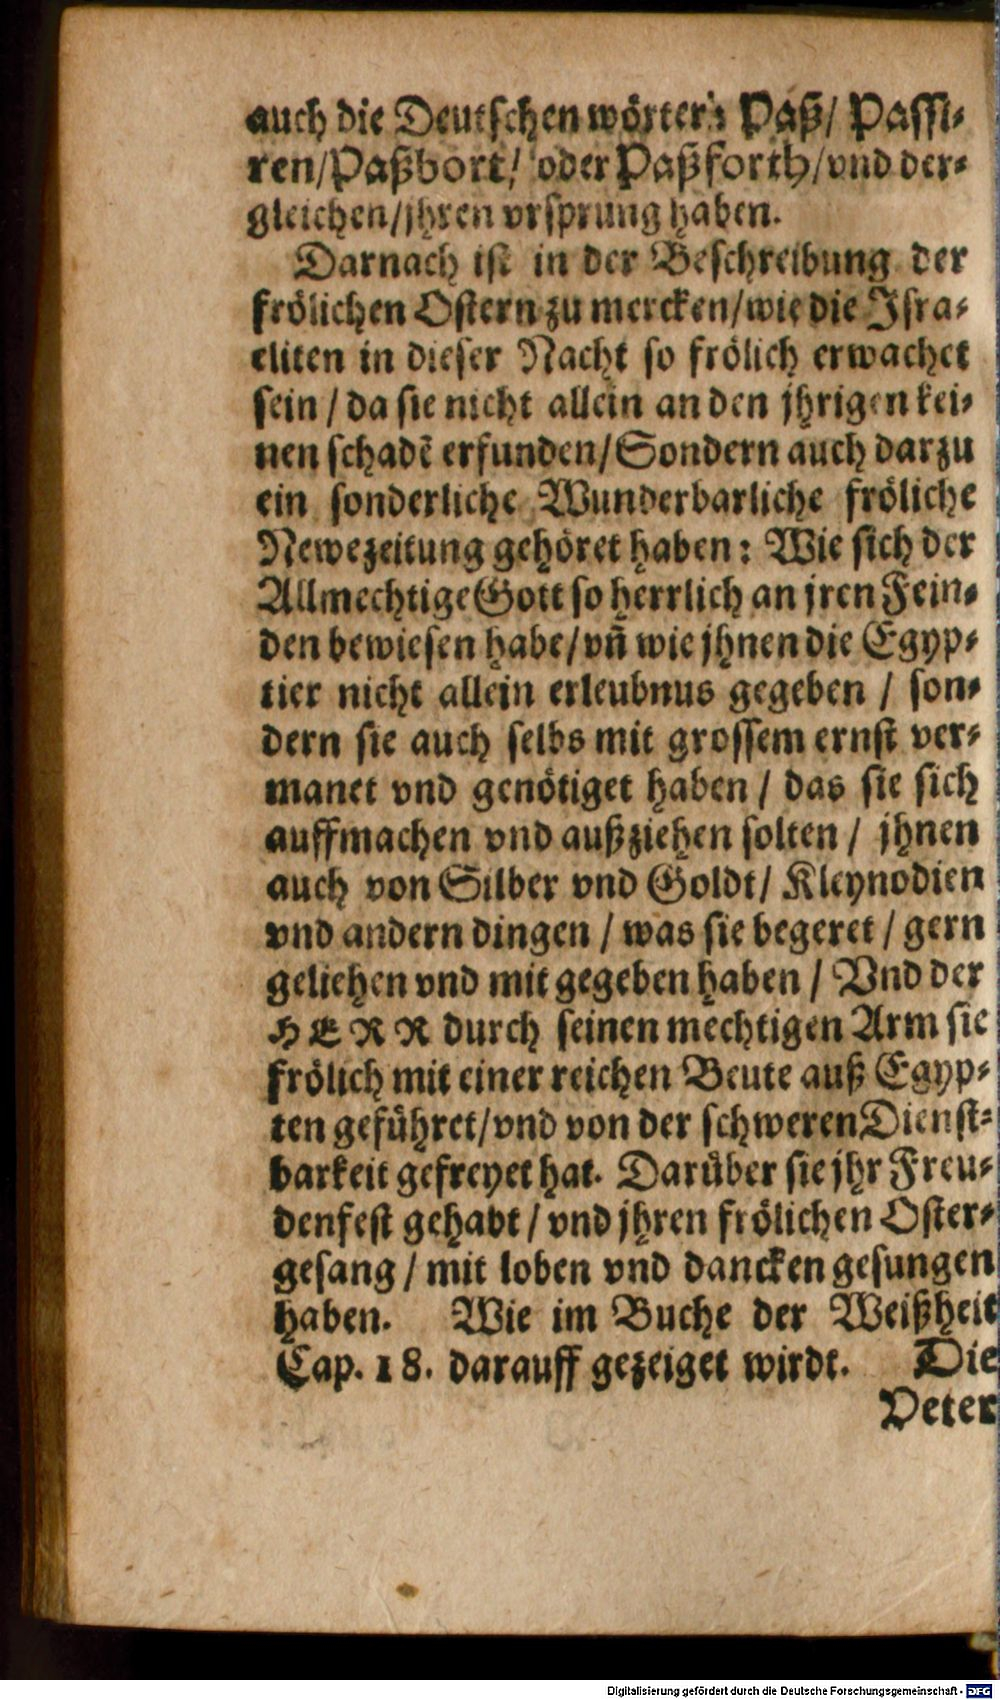 auch die Deutschen wörter: Paß/ Passi-
ren/Paßbort/ oder Paßforth/vnd der-
gleichen/jhren vrsprung haben.
Darnach ist in der Beschreibung der
frölichen Ostern zu mercken/wie die Isra-
eliten in dieser Nacht so frölich erwachet
sein / da sie nicht allein an den jhrigen kei-
nen schadẽ erfunden/Sondern auch darzu
ein sonderliche Wunderbarliche fröliche
Newezeitung gehöret haben: Wie sich der
Allmechtige Gott so herrlich an jren Fein-
den bewiesen habe/vñ wie jhnen die Egyp-
tier nicht allein erleubnus gegeben / son-
dern sie auch selbs mit grossem ernst ver-
manet vnd genötiget haben / das sie sich
auffmachen vnd außziehen solten / jhnen
auch von Silber vnd Goldt/ Kleynodien
vnd andern dingen / was sie begeret / gern
geliehen vnd mit gegeben haben / Vnd der
HERR durch seinen mechtigen Arm sie
frölich mit einer reichen Beute auß Egyp-
ten geführet/vnd von der schweren Dienst-
barkeit gefreyet hat. Darüber sie jhr Freu-
denfest gehabt / vnd jhren frölichen Oster-
gesang / mit loben vnd dancken gesungen
haben. Wie im Buche der Weißheit
Cap. 18. darauff gezeiget wirdt. Die
Veter
Digitalisierung gefördert durch die Deutsche Forschungsgemeinschaft - DFG